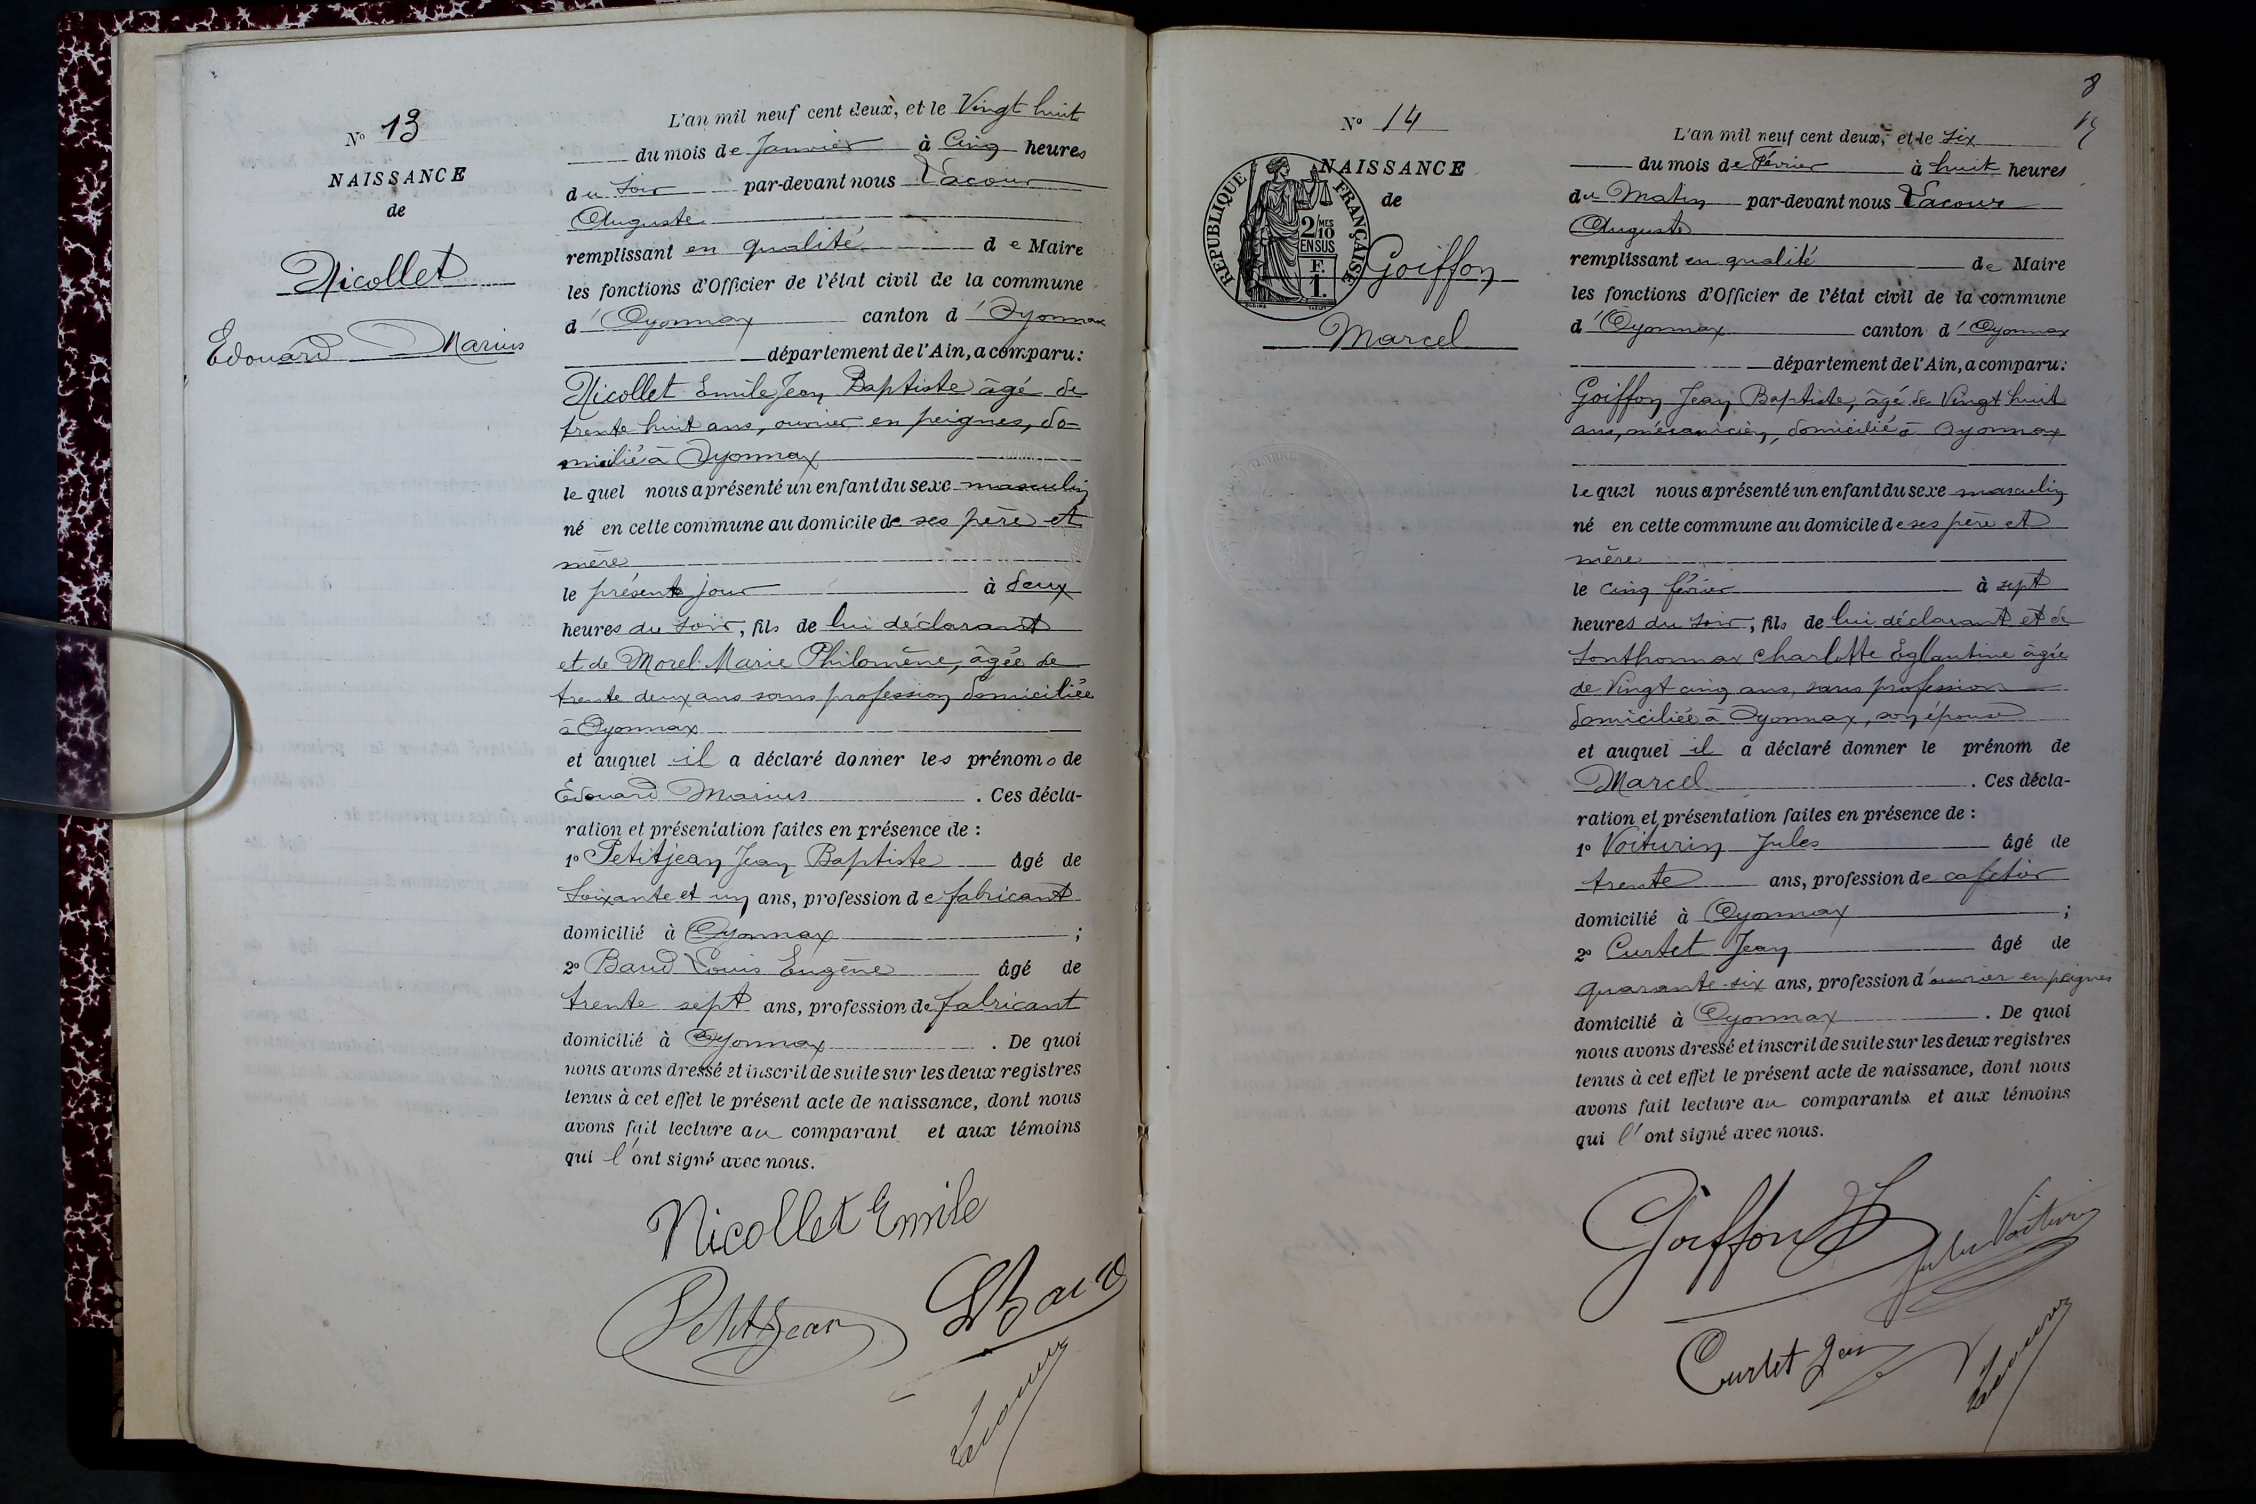 N° 13
NAISSANCE
de
Nicollet
Edouard Marius
L'an mil neuf cent deux, et le Vingt huit
du mois de Janvier à Cinq heures
du Soir par-devant nous Lacour
Auguste
remplissant en qualité de Maire
les fonctions d'Officier de l'état civil de la commune
d'Oyonnax canton d'Oyonnax
département de l'Ain, a comparu:
Nicollet Emile Jean Baptiste âgé de
trente huit ans, ouvrier en peignes, do-
micilié à Oyonnax
lequel nous a présenté un enfant du sexe masculin
né en cette commune au domicile de ses père et
mère
le présent jour à deux
heures du soir, fils de lui déclarant
et de Morel Marie Philomène, âgée de
trente deux ans sans profession domiciliée
à Oyonnax
et auquel il a déclaré donner les prénoms de
Edouard Marius. Ces décla-
ration et présentation faites en présence de :
1° Petitjean Jean Baptiste âgé de
Soixante et un ans, profession de fabricant
domicilié à Oyonnax ;
2° Baud Louis Eugène âgé de
trente sept ans, profession de fabricant
domicilié à Oyonnax. De quoi
nous avons dressé et inscrit de suite sur les deux registres
tenus à cet effet le présent acte de naissance, dont nous
avons fait lecture au comparant et aux témoins
qui l'ont signé avec nous.
Nicollet Emile
PetitJean
LBaud
Lacour
8
N° 14
NAISSANCE
de
REPUBLIQUE FRANÇAISE
2/10 MES
EN SUS
F.
1.
Goiffon
Marcel
L'an mil neuf cent deux, et le six
du mois de Février à huit heures
du Matin par-devant nous Lacour
Auguste
remplissant en qualité de Maire
les fonctions d'Officier de l'état civil de la commune
d'Oyonnax canton d'Oyonnax
département de l'Ain, a comparu:
Goiffon Jean Baptiste, âgé de Vingt huit
ans, mécanicien, domicilié à Oyonnax
lequel nous a présenté un enfant du sexe masculin
né en cette commune au domicile de ses père et
mère
le cinq février à sept
heures du soir, fils de lui déclarant et de
Sonthonnax Charlotte Eglantine âgée
de Vingt cinq ans, sans profession
domiciliée à Oyonnax, son épouse
et auquel il a déclaré donner le prénom de
Marcel. Ces décla-
ration et présentation faites en présence de :
1° Voiturin Jules âgé de
trente ans, profession de cafetier
domicilié à Oyonnax ;
2° Curtet Jean âgé de
quarante-six ans, profession d'ouvrier en peignes
domicilié à Oyonnax. De quoi
nous avons dressé et inscrit de suite sur les deux registres
tenus à cet effet le présent acte de naissance, dont nous
avons fait lecture au comparant et aux témoins
qui l'ont signé avec nous.
Goiffon
Jules Voiturin
Curtet Jean
Lacour